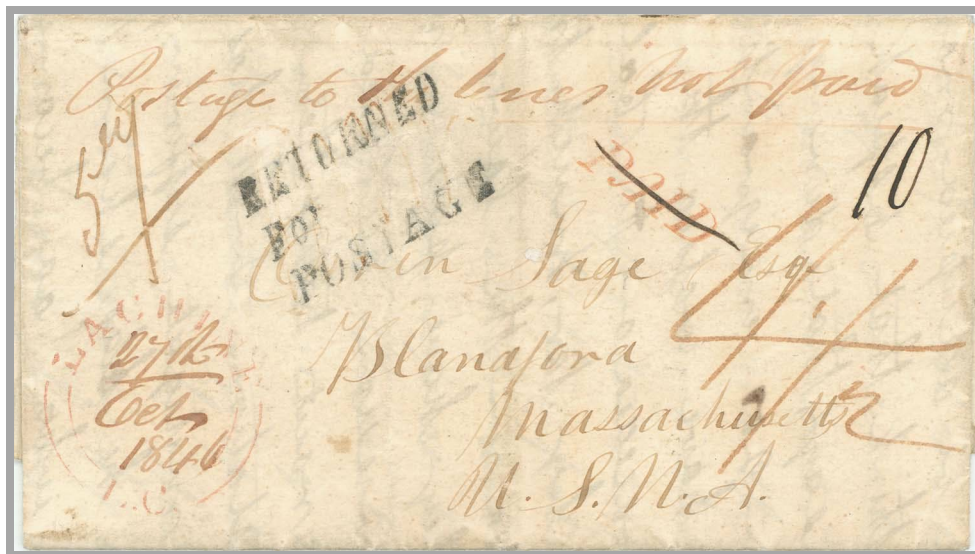 Postage to the lines not paid
RETURNED
FOR
POSTAGE
PAID
10
Sage Esqr
Blandford
Massachusetts
U.S.N.A.
4 1/2
LACHINE
27th
Oct
1846
L.C